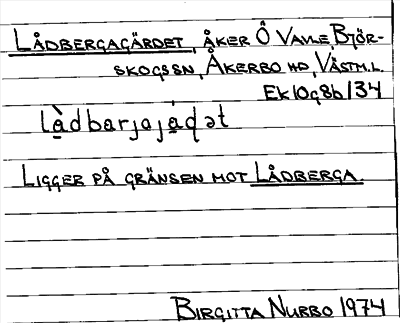 LÅDBERGAGÄRDET, ÅKER Ö VAVLE, BJÖR-
SKOGS SN, ÅKERBO HD, VÄSTM.L.
EK 10g8b/34
lådbarjajáḍət
LIGGER PÅ GRÄNSEN MOT LÅDBERGA.
BIRGITTA NURBO 1974